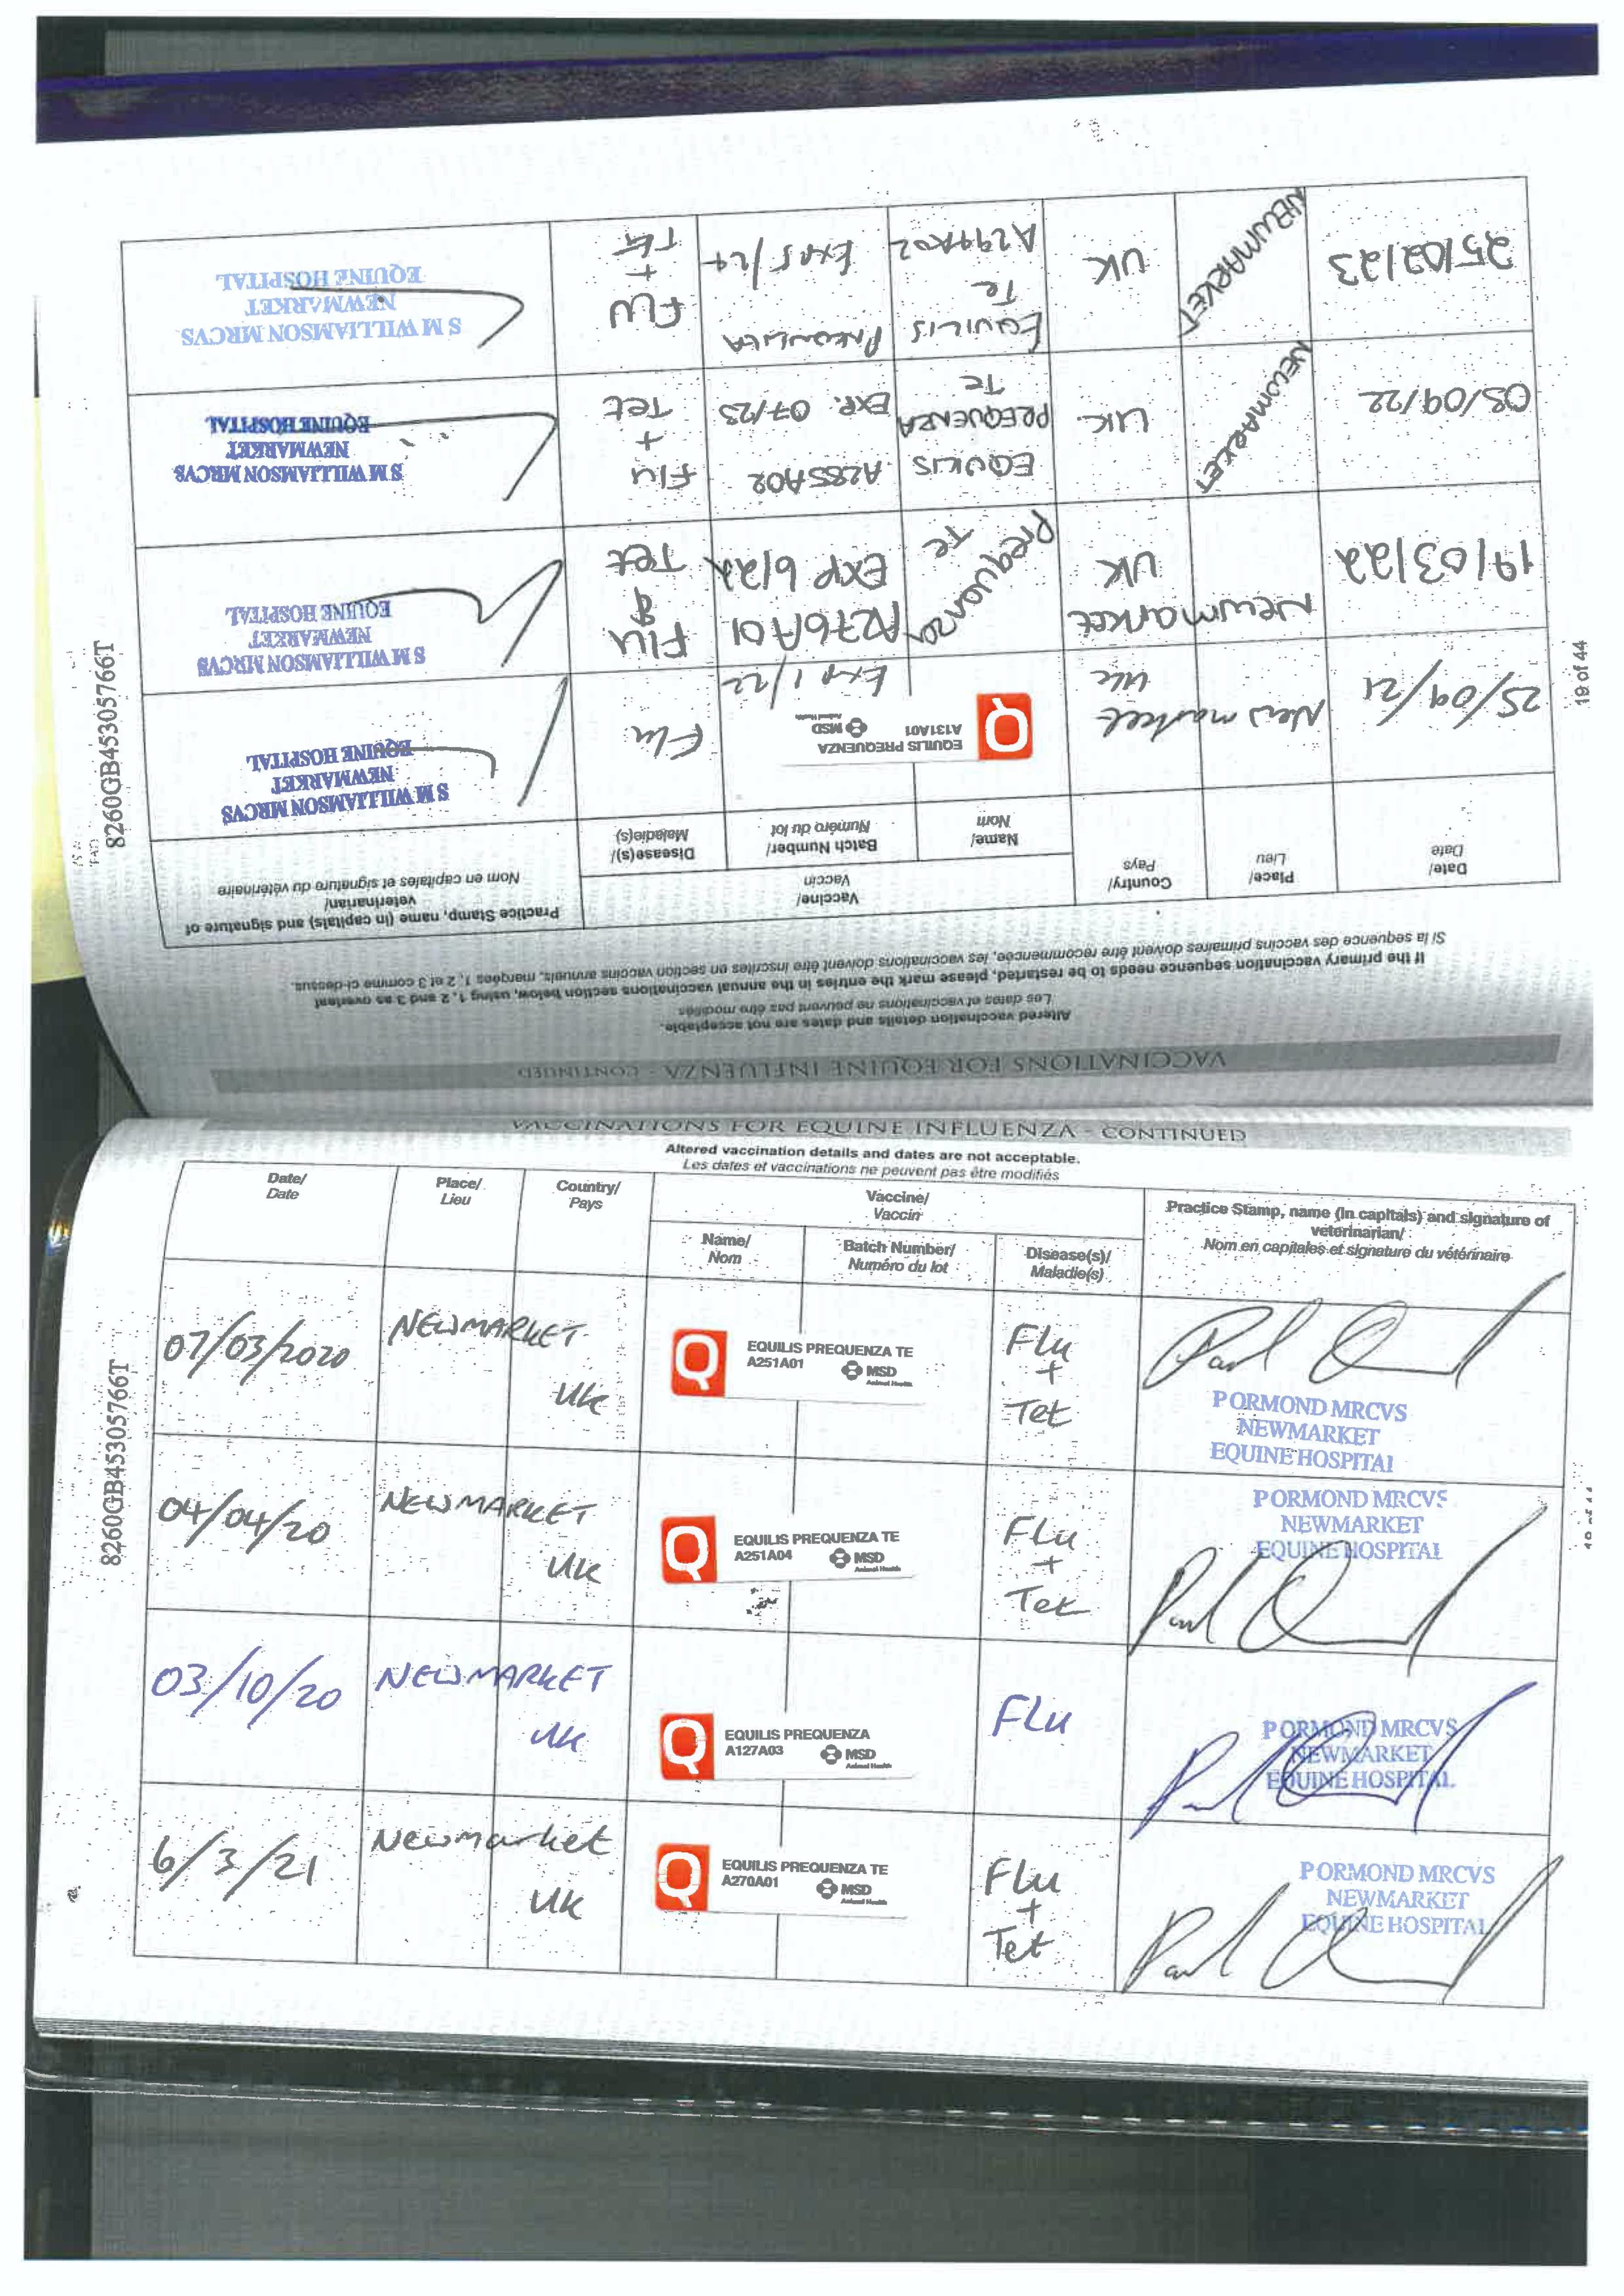 VACCINATIONS FOR EQUINE INFLUENZA - CONTINUED
Altered vaccination details and dates are not acceptable.
Les dates et vaccinations ne peuvent pas être modifiés
Date/
Date
Place/
Lieu
Country/
Pays
Vaccine/
Vaccin
Name/
Nom
Batch Number/
Numéro du lot
Disease(s)/
Maladie(s)
Practice Stamp, name (in capitals) and signature of
veterinarian/
Nom en capitales et signature du vétérinaire
07/03/2020
NEWMARKET
UK
EQUILIS PREQUENZA TE
A251A01
MSD
Animal Health
Flu
+
Tet
P ORMOND MRCVS
NEWMARKET
EQUINE HOSPITAL
04/04/20
NEWMARKET
UK
EQUILIS PREQUENZA TE
A251A04
MSD
Animal Health
Flu
+
Tet
P ORMOND MRCVS
NEWMARKET
EQUINE HOSPITAL
03/10/20
NEWMARKET
UK
EQUILIS PREQUENZA
A127A03
MSD
Animal Health
Flu
P ORMOND MRCVS
NEWMARKET
EQUINE HOSPITAL
6/3/21
Newmarket
UK
EQUILIS PREQUENZA TE
A270A01
MSD
Animal Health
Flu
+
Tet
P ORMOND MRCVS
NEWMARKET
EQUINE HOSPITAL
8260GB45305766T
VACCINATIONS FOR EQUINE INFLUENZA - CONTINUED
Altered vaccination details and dates are not acceptable.
Les dates et vaccinations ne peuvent pas être modifiés
If the primary vaccination sequence needs to be restarted, please mark the entries in the annual vaccinations section below, using 1, 2 and 3 as overleaf
Si la sequence des vaccins primaires doivent être recommencée, les vaccinations doivent être inscrites en section vaccins annuels, marqées 1, 2 et 3 comme ci-dessus.
Date/
Date
Place/
Lieu
Country/
Pays
Vaccine/
Vaccin
Name/
Nom
Batch Number/
Numéro du lot
Disease(s)/
Maladie(s)
Practice Stamp, name (in capitals) and signature of
veterinarian/
Nom en capitales et signature du vétérinaire
25/09/21
Newmarket
UK
EQUILIS PREQUENZA
A131A01
MSD
Animal Health
Exp 1/22
Flu
S M WILLIAMSON MRCVS
NEWMARKET
EQUINE HOSPITAL
19/03/22
Newmarket
UK
Prequanza
Te
A276A01
EXP 6/22
Flu
&
Tet
S M WILLIAMSON MRCVS
NEWMARKET
EQUINE HOSPITAL
03/09/22
NEWMARKET
UK
EQUILIS
PREQUENZA
TE
A285A02
EXP. 07/23
Flu
+
Tet
S M WILLIAMSON MRCVS
NEWMARKET
EQUINE HOSPITAL
25/02/23
NEWMARKET
UK
EQUILIS
Te
A299A02
Exp 5/24
FLU
+
TET
S M WILLIAMSON MRCVS
NEWMARKET
EQUINE HOSPITAL
8260GB45305766T
19 of 44